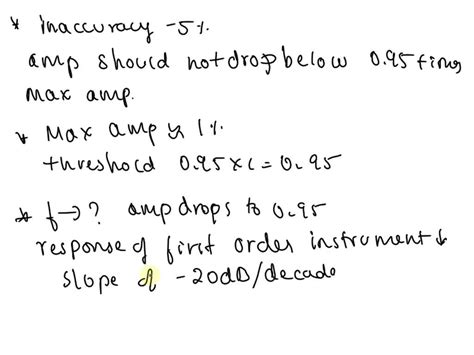 * inaccuracy -5%
amp should not drop below 0.95 times
max amp.
* Max amp is 1%
threshold 0.95 x 1 = 0.95
* f → ? amp drops to 0.95
response of first order instrument ↓
slope of -20dD/decade